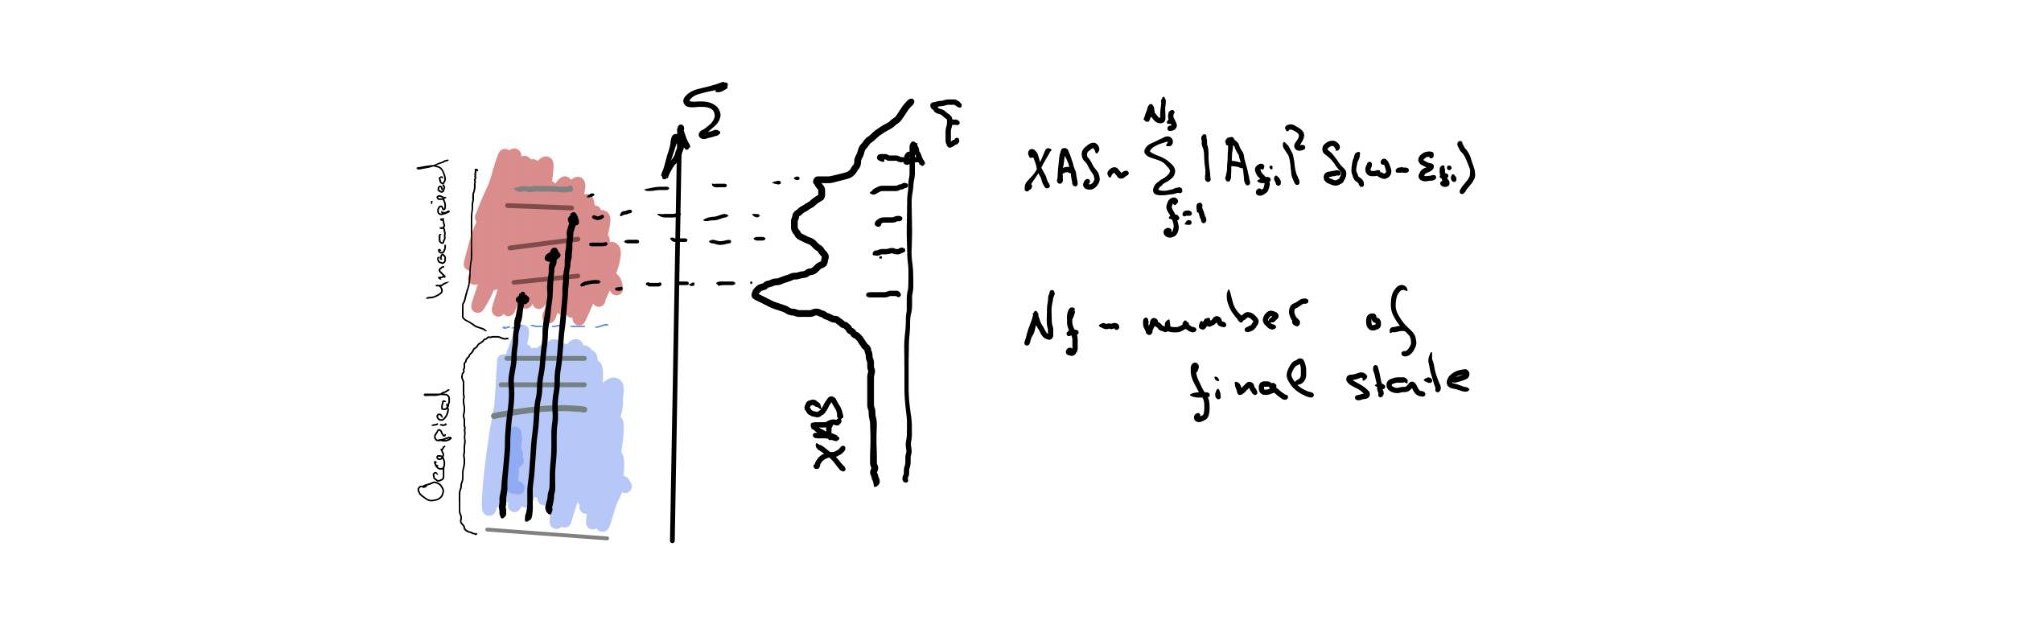 Unoccupied
Occupied
Σ
XAS
XAS ~ Σ |A_fi|² δ(ω - ε_fi)
N_f
f=1
N_f - number of
final state